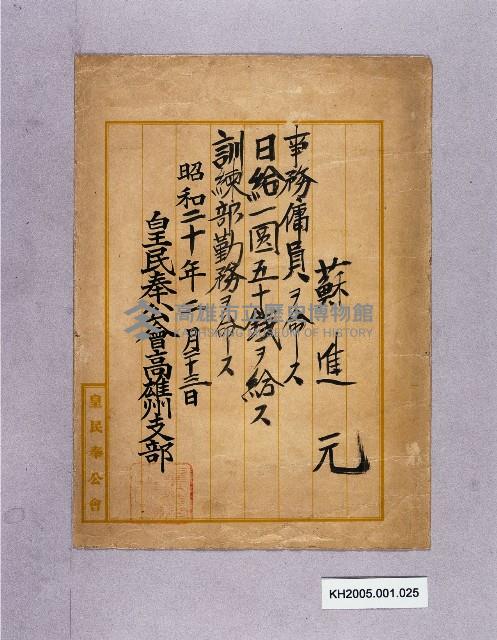 蘇進元
事務傭員ヲ命ス
日給一圓五十錢ヲ給ス
訓練部勤務ヲ命ス
昭和二十年二月二十三日
皇民奉公會高雄州支部
皇民奉公會
高雄市立歷史博物館
KAOHSIUNG MUSEUM OF HISTORY
KH2005.001.025